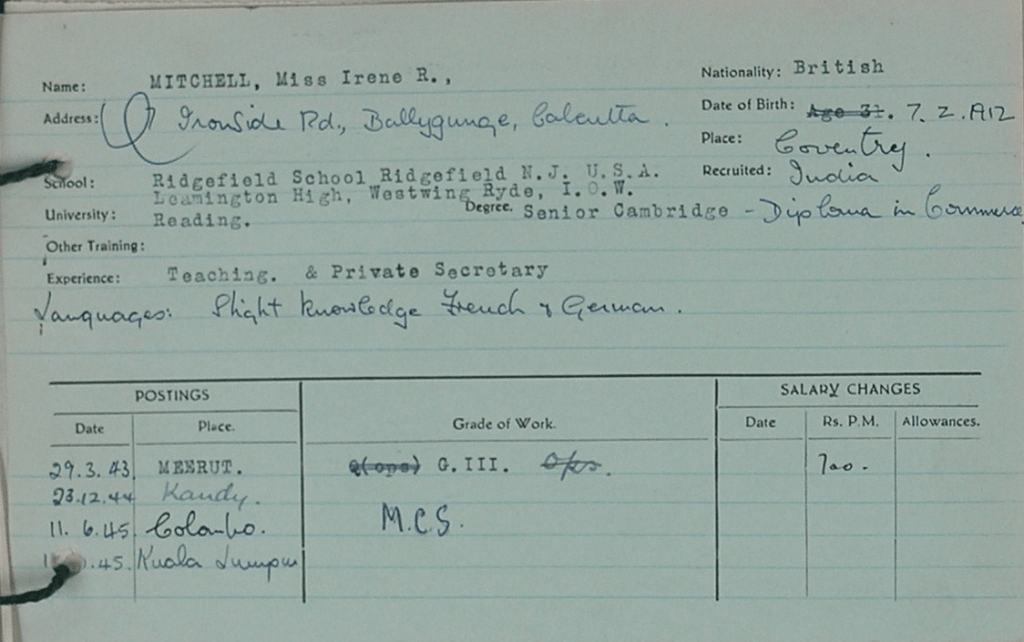 Name: MITCHELL, Miss Irene R., Nationality: British
Address: Ironside Rd., Ballygunge, Calcutta. Date of Birth: Age 31. 7.2.1912
Place: Coventry.
School: Ridgefield School Ridgefield N.J. U.S.A. Recruited: India
Leamington High, Westwing Ryde, I.O.W.
University: Reading. Degree. Senior Cambridge - Diploma in Commerce
Other Training:
Experience: Teaching. & Private Secretary
Languages: Slight knowledge French & German.
POSTINGS SALARY CHANGES
Date Place. Grade of Work. Date Rs. P.M. Allowances.
29.3.43 MEERUT. G(ops) G.III. Ops. 700.
23.12.44 Kandy.
11.6.45 Colombo. M.C.S.
.45. Kuala Lumpur